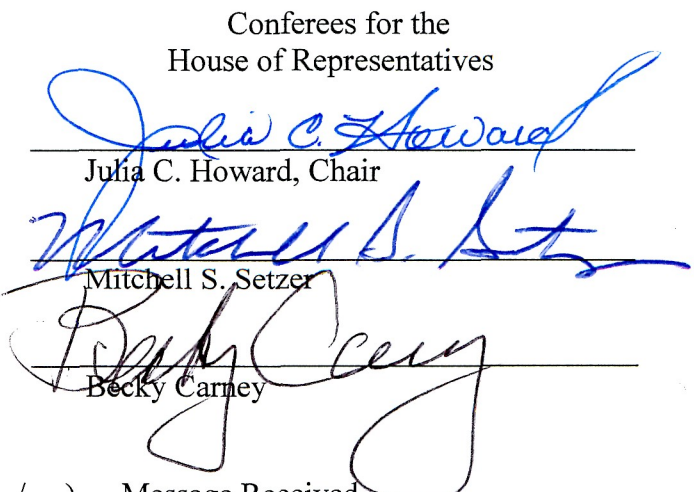 Conferees for the
House of Representatives
Julia C. Howard
Julia C. Howard, Chair
Mitchell S. Setzer
Mitchell S. Setzer
Becky Carney
Becky Carney
Message Received